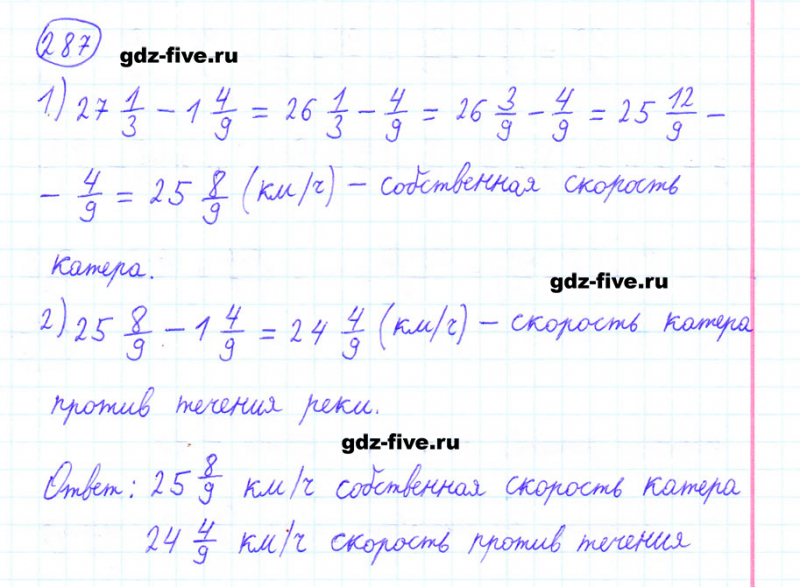 287
gdz-five.ru
1) 27 1/3 − 1 4/9 = 26 1/3 − 4/9 = 26 3/9 − 4/9 = 25 12/9 −
− 4/9 = 25 8/9 (км/ч) − собственная скорость
катера.
gdz-five.ru
2) 25 8/9 − 1 4/9 = 24 4/9 (км/ч) − скорость катера
против течения реки.
gdz-five.ru
Ответ: 25 8/9 км/ч собственная скорость катера
24 4/9 км/ч скорость против течения